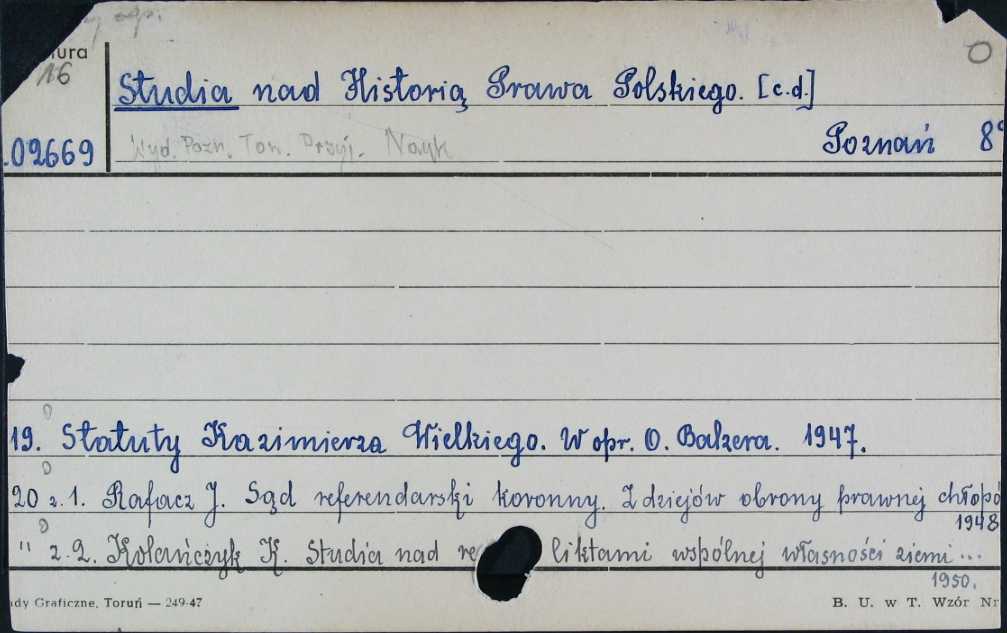 ura
16
Studia nad Historią Prawa Polskiego. [c.d.]
.02669 Wyd. Pozn. Tow. Przyj. Nauk Poznań 8°
19. Statuty Kazimierza Wielkiego. W opr. O. Balzera. 1947.
20 z.1. Rafacz J. Sąd referendarski koronny. Z dziejów obrony prawnej chłopó
1948
" z.2. Kolańczyk K. Studia nad re liktami wspólnej własności ziemi...
1950.
dy Graficzne, Toruń — 249-47 B. U. w T. Wzór Nr